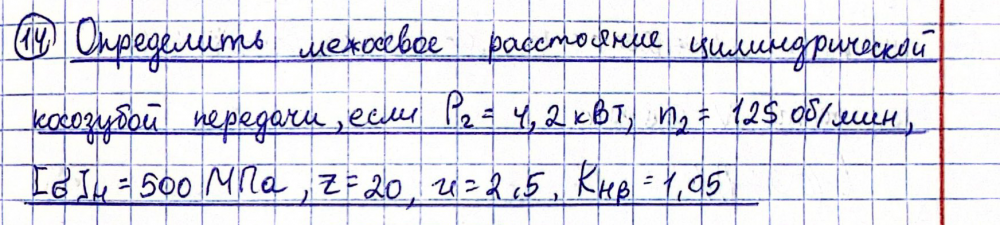 14. Определить межосевое расстояние цилиндрической
косозубой передачи, если P₂ = 4,2 кВт, n₂ = 125 об/мин,
[σ]н = 500 МПа, z = 20, u = 2.5, Kнβ = 1,05